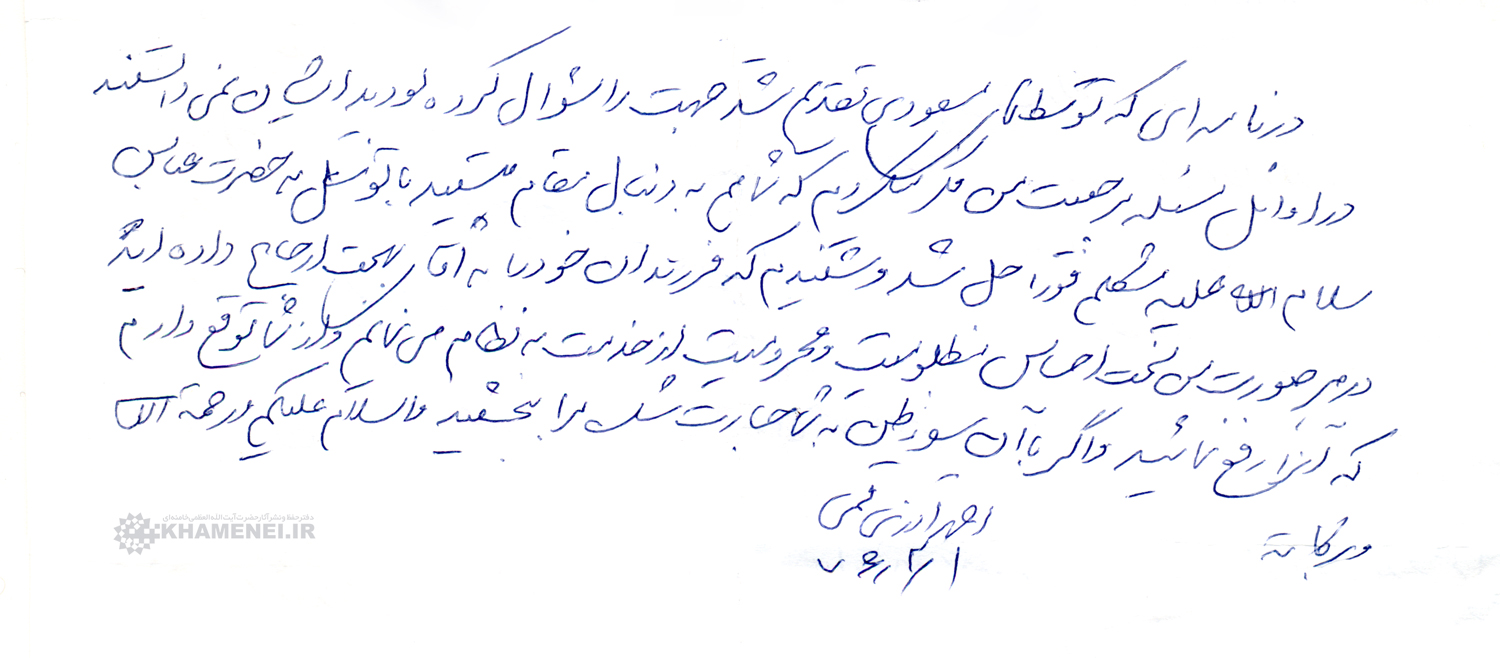 در نامه ای که توسط آقای مسعودی تقدیم شد جهت را سئوال کرده بودید ایشان نمی دانستند
در اوائل مسئله مرجعیت من فکر میکردم که شما هم به دنبال مقام هستید با توسل به حضرت عباس
سلام الله علیه مشکلم فوراً حل شد و شنیدم که فرزندان خود را به آقای بهجت ارجاع داده اید
در هر صورت من تحت احساس مظلومیت و محرومیت از خدمت به نظام می نمایم و از شما توقع دارم
که آنرا رفع نمائید و اگر با آن سوءظن به شما جسارت شد مرا ببخشید والسلام علیکم ورحمة الله
وبرکاته
احمد آذری قمی
۷۶/۲/۱
دفتر حفظ و نشر آثار حضرت آیت‌الله‌العظمی خامنه‌ای
KHAMENEI.IR